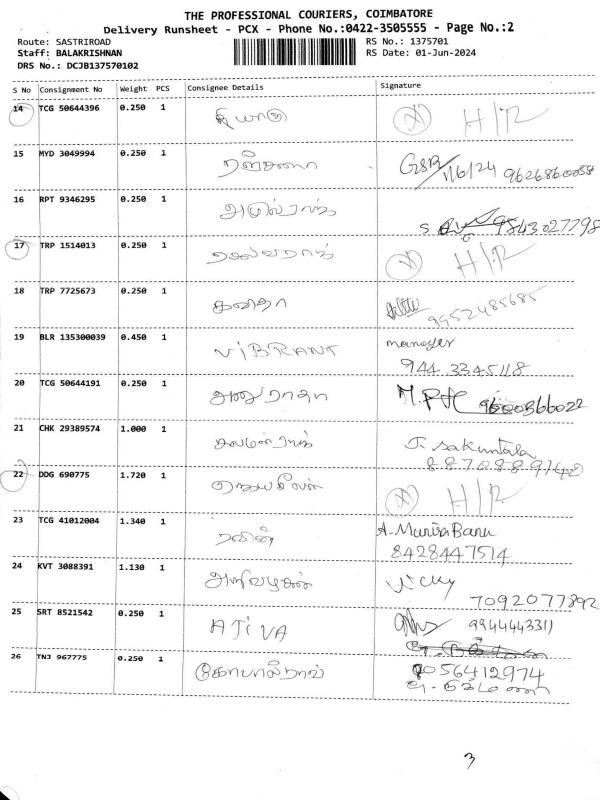 THE PROFESSIONAL COURIERS, COIMBATORE
Delivery Runsheet - PCX - Phone No.:0422-3505555 - Page No.:2
Route: SASTRIROAD RS No.: 1375701
Staff: BALAKRISHNAN RS Date: 01-Jun-2024
DRS No.: DCJB137570102
S No Consignment No Weight PCS Consignee Details Signature
14 TCG 50644396 0.250 1 H/R
15 MYD 3049994 0.250 1 GSR 1/6/24 9626860058
16 RPT 9346295 0.250 1 9843027798
17 TRP 1514013 0.250 1 செல்வராஜ் H/R
18 TRP 7725673 0.250 1 கவிதா 9952485685
19 BLR 135300039 0.450 1 VIBRANT manager
944 3345118
20 TCG 50644191 0.250 1 அனுராதா 9600366022
21 CHK 29389574 1.000 1 J. Sakuntala
22 DDG 690775 1.720 1 H/R
23 TCG 41012004 1.340 1 A. Munisa Banu
8428447514
24 KVT 3088391 1.130 1 அறிவழகன் Vicky
7092077892
25 SRT 8521542 0.250 1 AJIVA 9944443311
26 TNJ 967775 0.250 1 கோபால்ராஜ் 9056412974
3